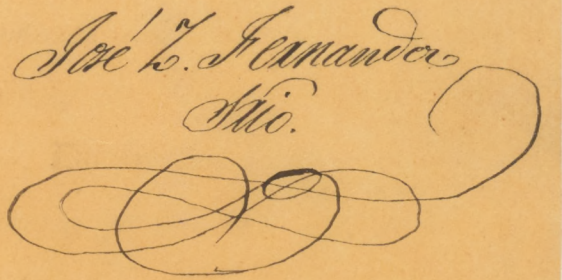 José Z. Fernandez
Srio.